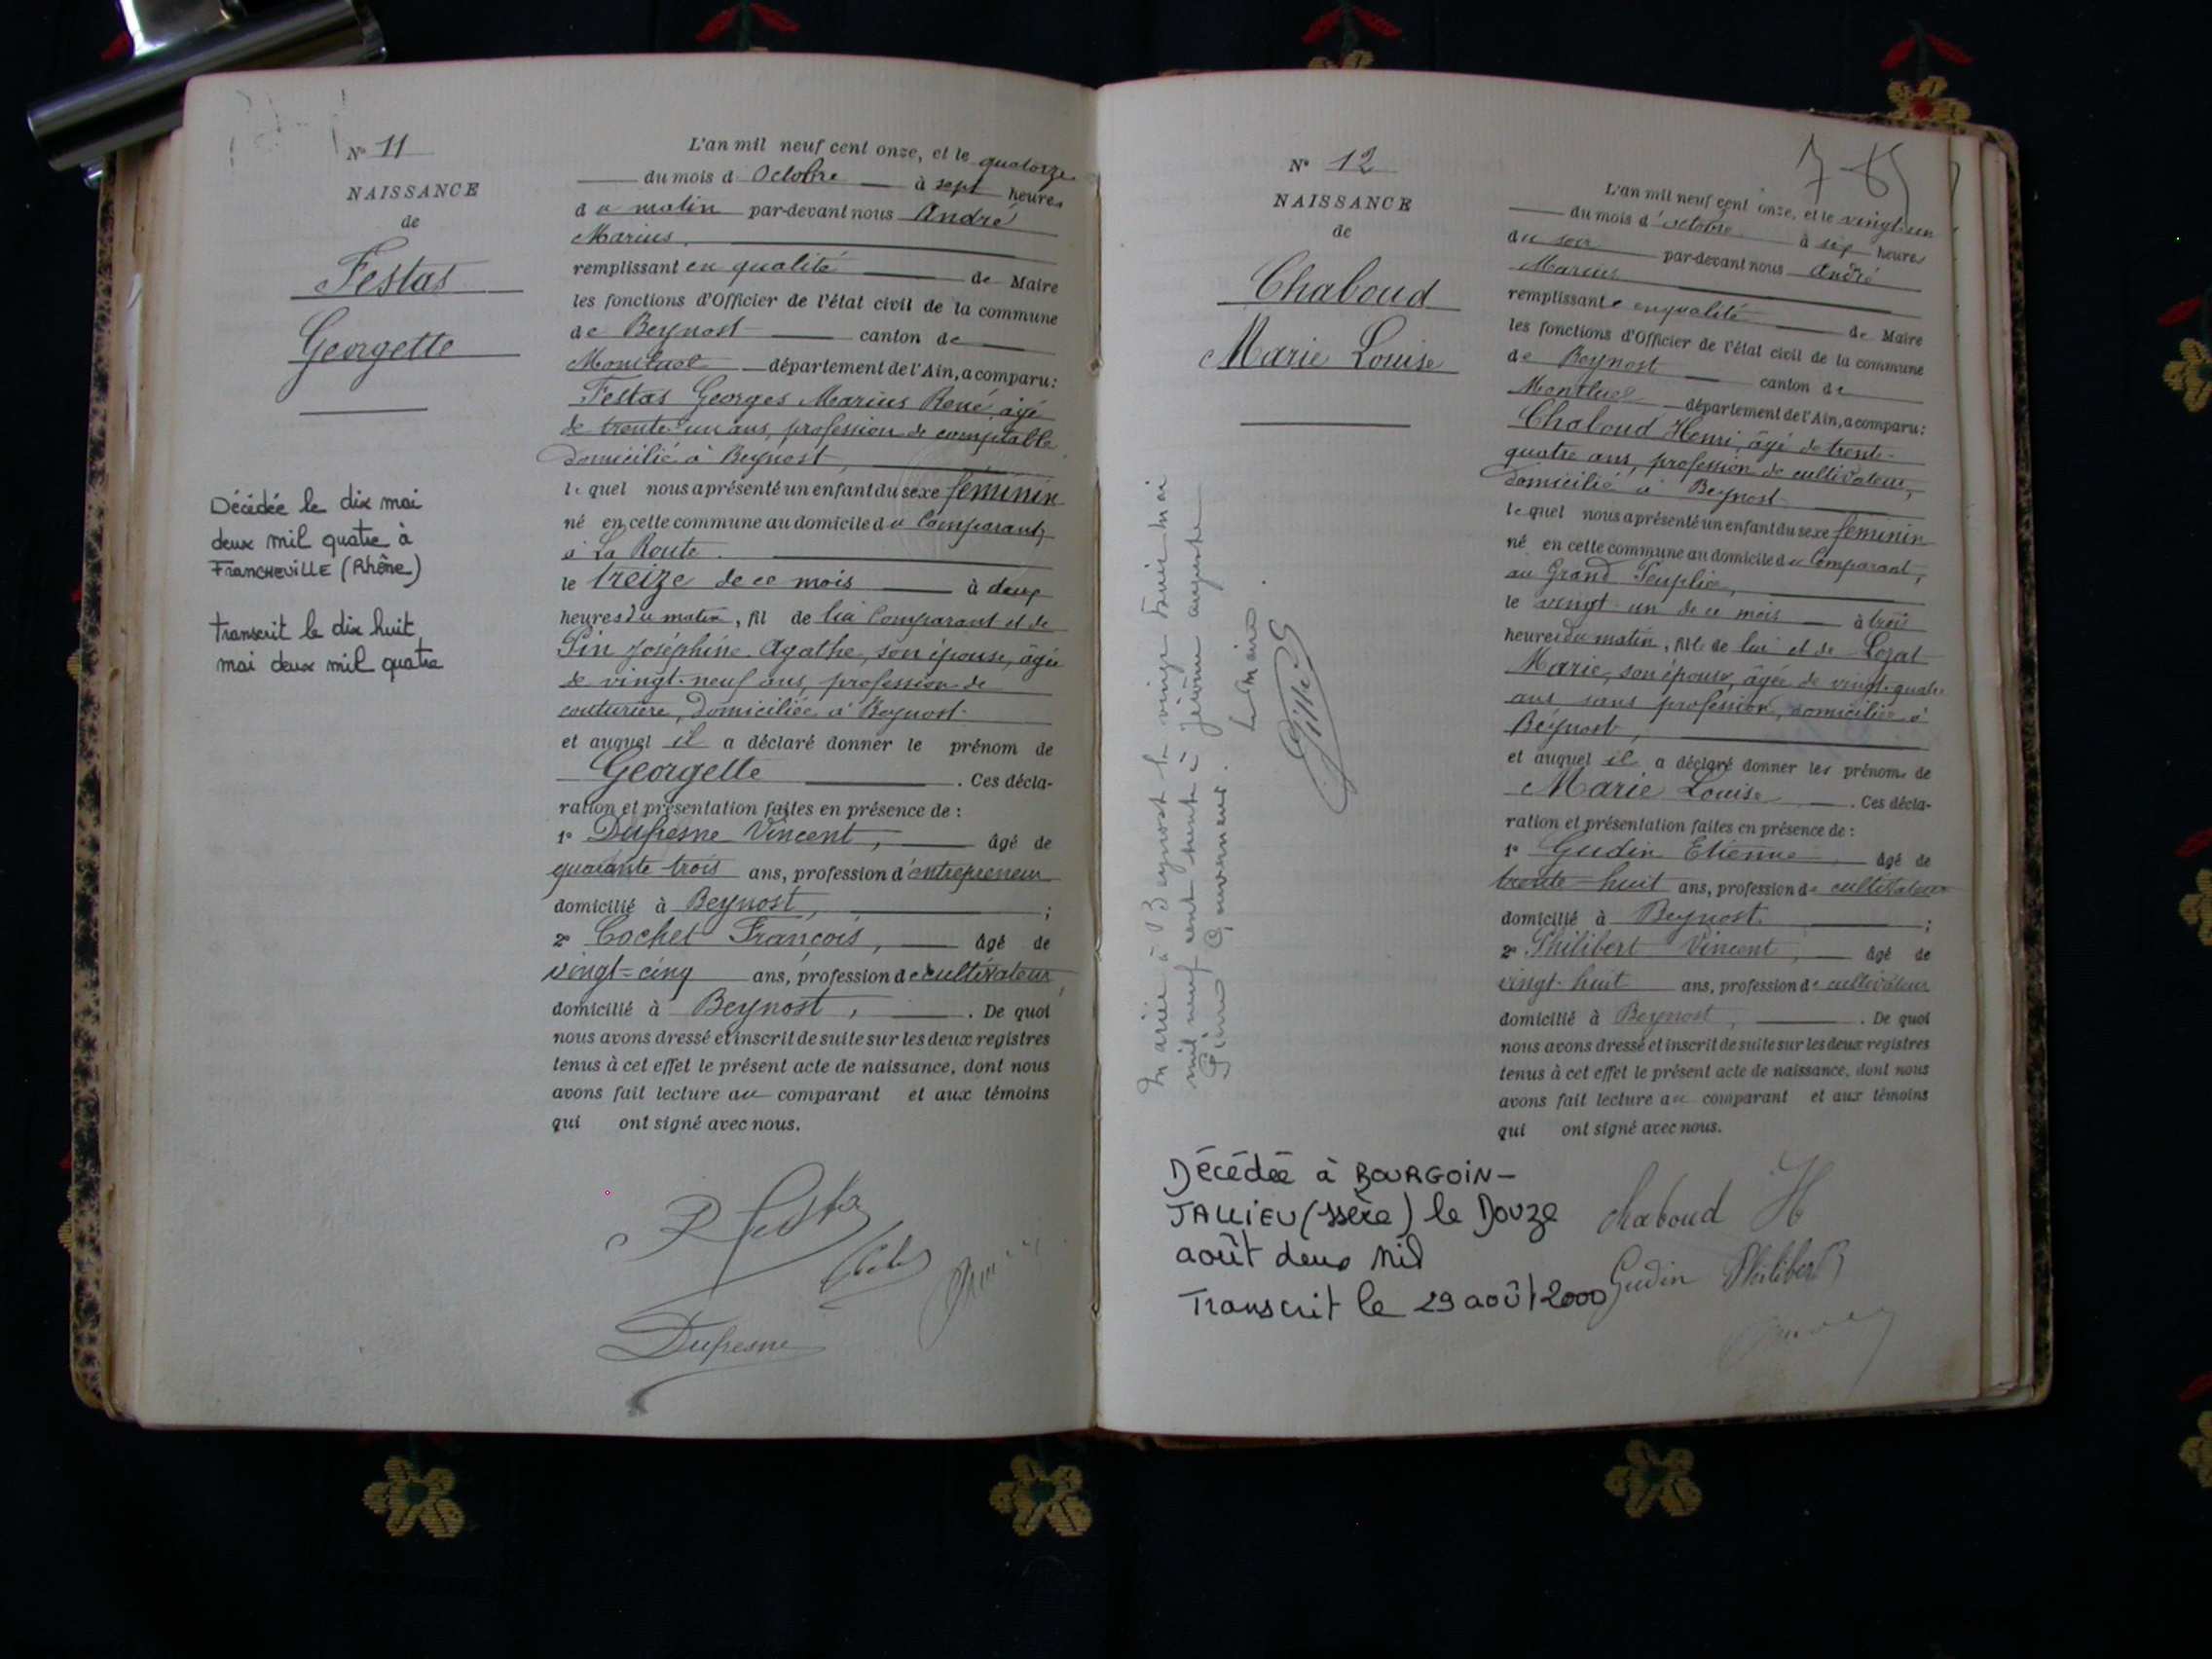 N° 11
NAISSANCE
de
Festas
Georgette
Décédée le dix mai
deux mil quatre à
FRANCHEVILLE (Rhône)
transcrit le dix huit
mai deux mil quatre
L'an mil neuf cent onze, et le quatorze
du mois d Octobre à sept heures
du matin par-devant nous André
Marius,
remplissant en qualité de Maire
les fonctions d'Officier de l'état civil de la commune
de Beynost canton de
Montluel département de l'Ain, a comparu :
Festas Georges Marius René, âgé
de trente un ans, profession de comptable
domicilié à Beynost,
lequel nous a présenté un enfant du sexe féminin
né en cette commune au domicile du Comparant,
à La Route.
le treize de ce mois à deux
heures du matin, fil de lui Comparant et de
Pin Joséphine Agathe, son épouse, âgée
de vingt-neuf ans, profession de
couturière, domiciliée à Beynost
et auquel il a déclaré donner le prénom de
Georgette . Ces décla-
ration et présentation faites en présence de :
1° Dufresne Vincent, âgé de
quarante trois ans, profession d'entrepreneur
domicilié à Beynost, ;
2° Cochet François, âgé de
vingt=cinq ans, profession de cultivateur,
domicilié à Beynost, . De quoi
nous avons dressé et inscrit de suite sur les deux registres
tenus à cet effet le présent acte de naissance, dont nous
avons fait lecture au comparant et aux témoins
qui ont signé avec nous.
Dufresne
N° 12
NAISSANCE
de
Chaboud
Marie Louise
Mariée à Beynost le vingt huit mai
mil neuf cent trente à Jérôme auguste
Gouverneur.
Le Maire
Décédée à BOURGOIN-
JALLIEU (Isère) le Douze
août deux Mil
Transcrit le 29 août 2000
L'an mil neuf cent onze, et le vingt-un
du mois d'octobre à six heures
du soir par-devant nous André
Marius
remplissant en qualité de Maire
les fonctions d'Officier de l'état civil de la commune
de Beynost canton de
Montluel département de l'Ain, a comparu :
Chaboud Henri, âgé de trente-
quatre ans, profession de cultivateur,
domicilié à Beynost
lequel nous a présenté un enfant du sexe féminin
né en cette commune au domicile du Comparant,
au Grand Peuplier,
le vingt-un de ce mois à trois
heures du matin, fille de lui et de Lozat
Marie, son épouse, âgée de vingt-quatre
ans sans profession, domiciliée à
Beynost,
et auquel il a déclaré donner les prénoms de
Marie Louise . Ces décla-
ration et présentation faites en présence de :
1° Gudin Etienne, âgé de
trente-huit ans, profession de cultivateur
domicilié à Beynost. ;
2° Philibert Vincent, âgé de
vingt-huit ans, profession de cultivateur
domicilié à Beynost, . De quoi
nous avons dressé et inscrit de suite sur les deux registres
tenus à cet effet le présent acte de naissance, dont nous
avons fait lecture au comparant et aux témoins
qui ont signé avec nous.
Chaboud H
Gudin Philibert